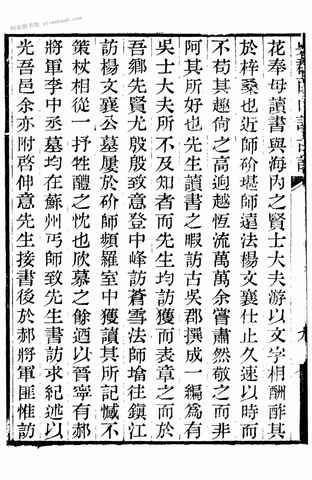 花奉母讀書與海內之賢士大夫游以文字相酬酢其
於梓桑也近師砎堪師遠法楊文襄仕止久速以時而
不苟其趣尚之高逈越恆流萬萬余嘗肅然敬之而非
阿其所好也先生讀書之暇訪古吳郡撰成一編爲有
吳士大夫所不及知者而先生均訪獲而表章之而於
吾鄉先賢尤殷殷致意登中峰訪蒼雪法師塔往鎮江
訪楊文襄公墓屢於砎師頻羅室中獲讀其所記懺不
策杖相從一抒牲醴之忱也欣慕之餘迺以晉寧有郝
將軍李中丞墓均在蘇州丐師致先生書訪求紀述以
光吾邑余亦附啓伸意先生接書後於郝將軍匪惟訪